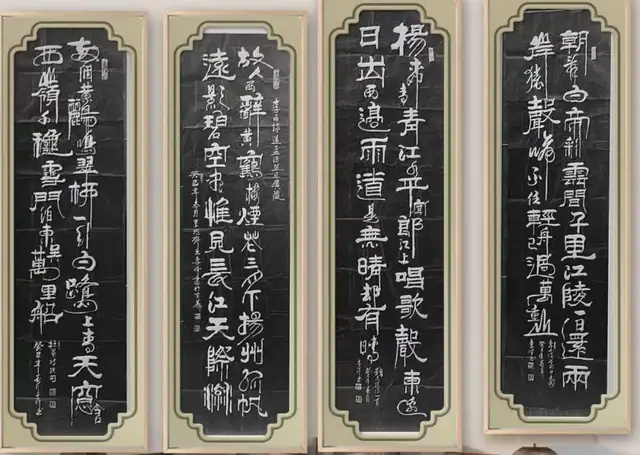 朝辭白帝彩雲間千里江陵一日還兩
岸猿聲啼不住輕舟已過萬重山
楊柳青青江水平聞郎江上唱歌聲東邊
日出西邊雨道是無晴却有晴
李白詩送孟浩然之廣陵
故人西辭黃鶴樓煙花三月下揚州孤帆
遠影碧空盡惟見長江天際流
癸巳年春月
兩個黃鸝鳴翠柳一行白鷺上青天窓含
西嶺千秋雪門泊東吳萬里船
杜甫詩絕句
癸巳年